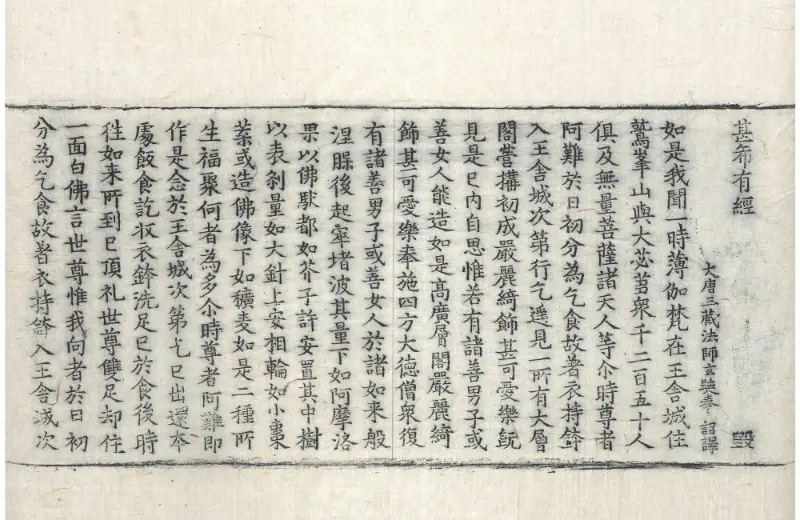 甚希有經 毀
大唐三藏法師玄奘奉 詔譯
如是我聞一時薄伽梵在王舍城住
鷲峯山與大苾芻衆千二百五十人
俱及無量菩薩諸天人等尒時尊者
阿難於日初分為乞食故著衣持鉢
入王舍城次第行乞遥見一所有大層
閣營搆初成嚴麗綺飾甚可愛樂旣
見是已内自思惟若有諸善男子或
善女人能造如是高廣層閣嚴麗綺
飾甚可愛樂奉施四方大德僧衆復
有諸善男子或善女人於諸如來般
涅槃後起窣堵波其量下如阿摩洛
果以佛馱都如芥子許安置其中樹
以表剎量如大針上安相輪如小棗
葉或造佛像下如穬麦如是二種所
生福聚何者為多尒時尊者阿難即
作是念於王舍城次第乞已出還本
處飯食訖收衣鉢洗足已於食後時
往如來所到已頂礼世尊雙足却住
一面白佛言世尊惟我向者於日初
分為乞食故著衣持鉢入王舍城次